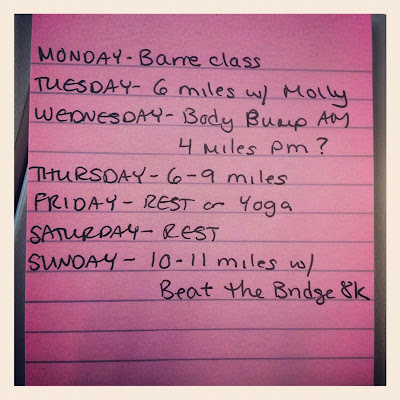 MONDAY - Barre class
TUESDAY - 6 miles w/ Molly
WEDNESDAY - Body Bump AM
4 miles pm?
THURSDAY - 6-9 miles
FRIDAY - REST or Yoga
SATURDAY - REST
SUNDAY - 10-11 miles w/
Beat the Bridge 8k